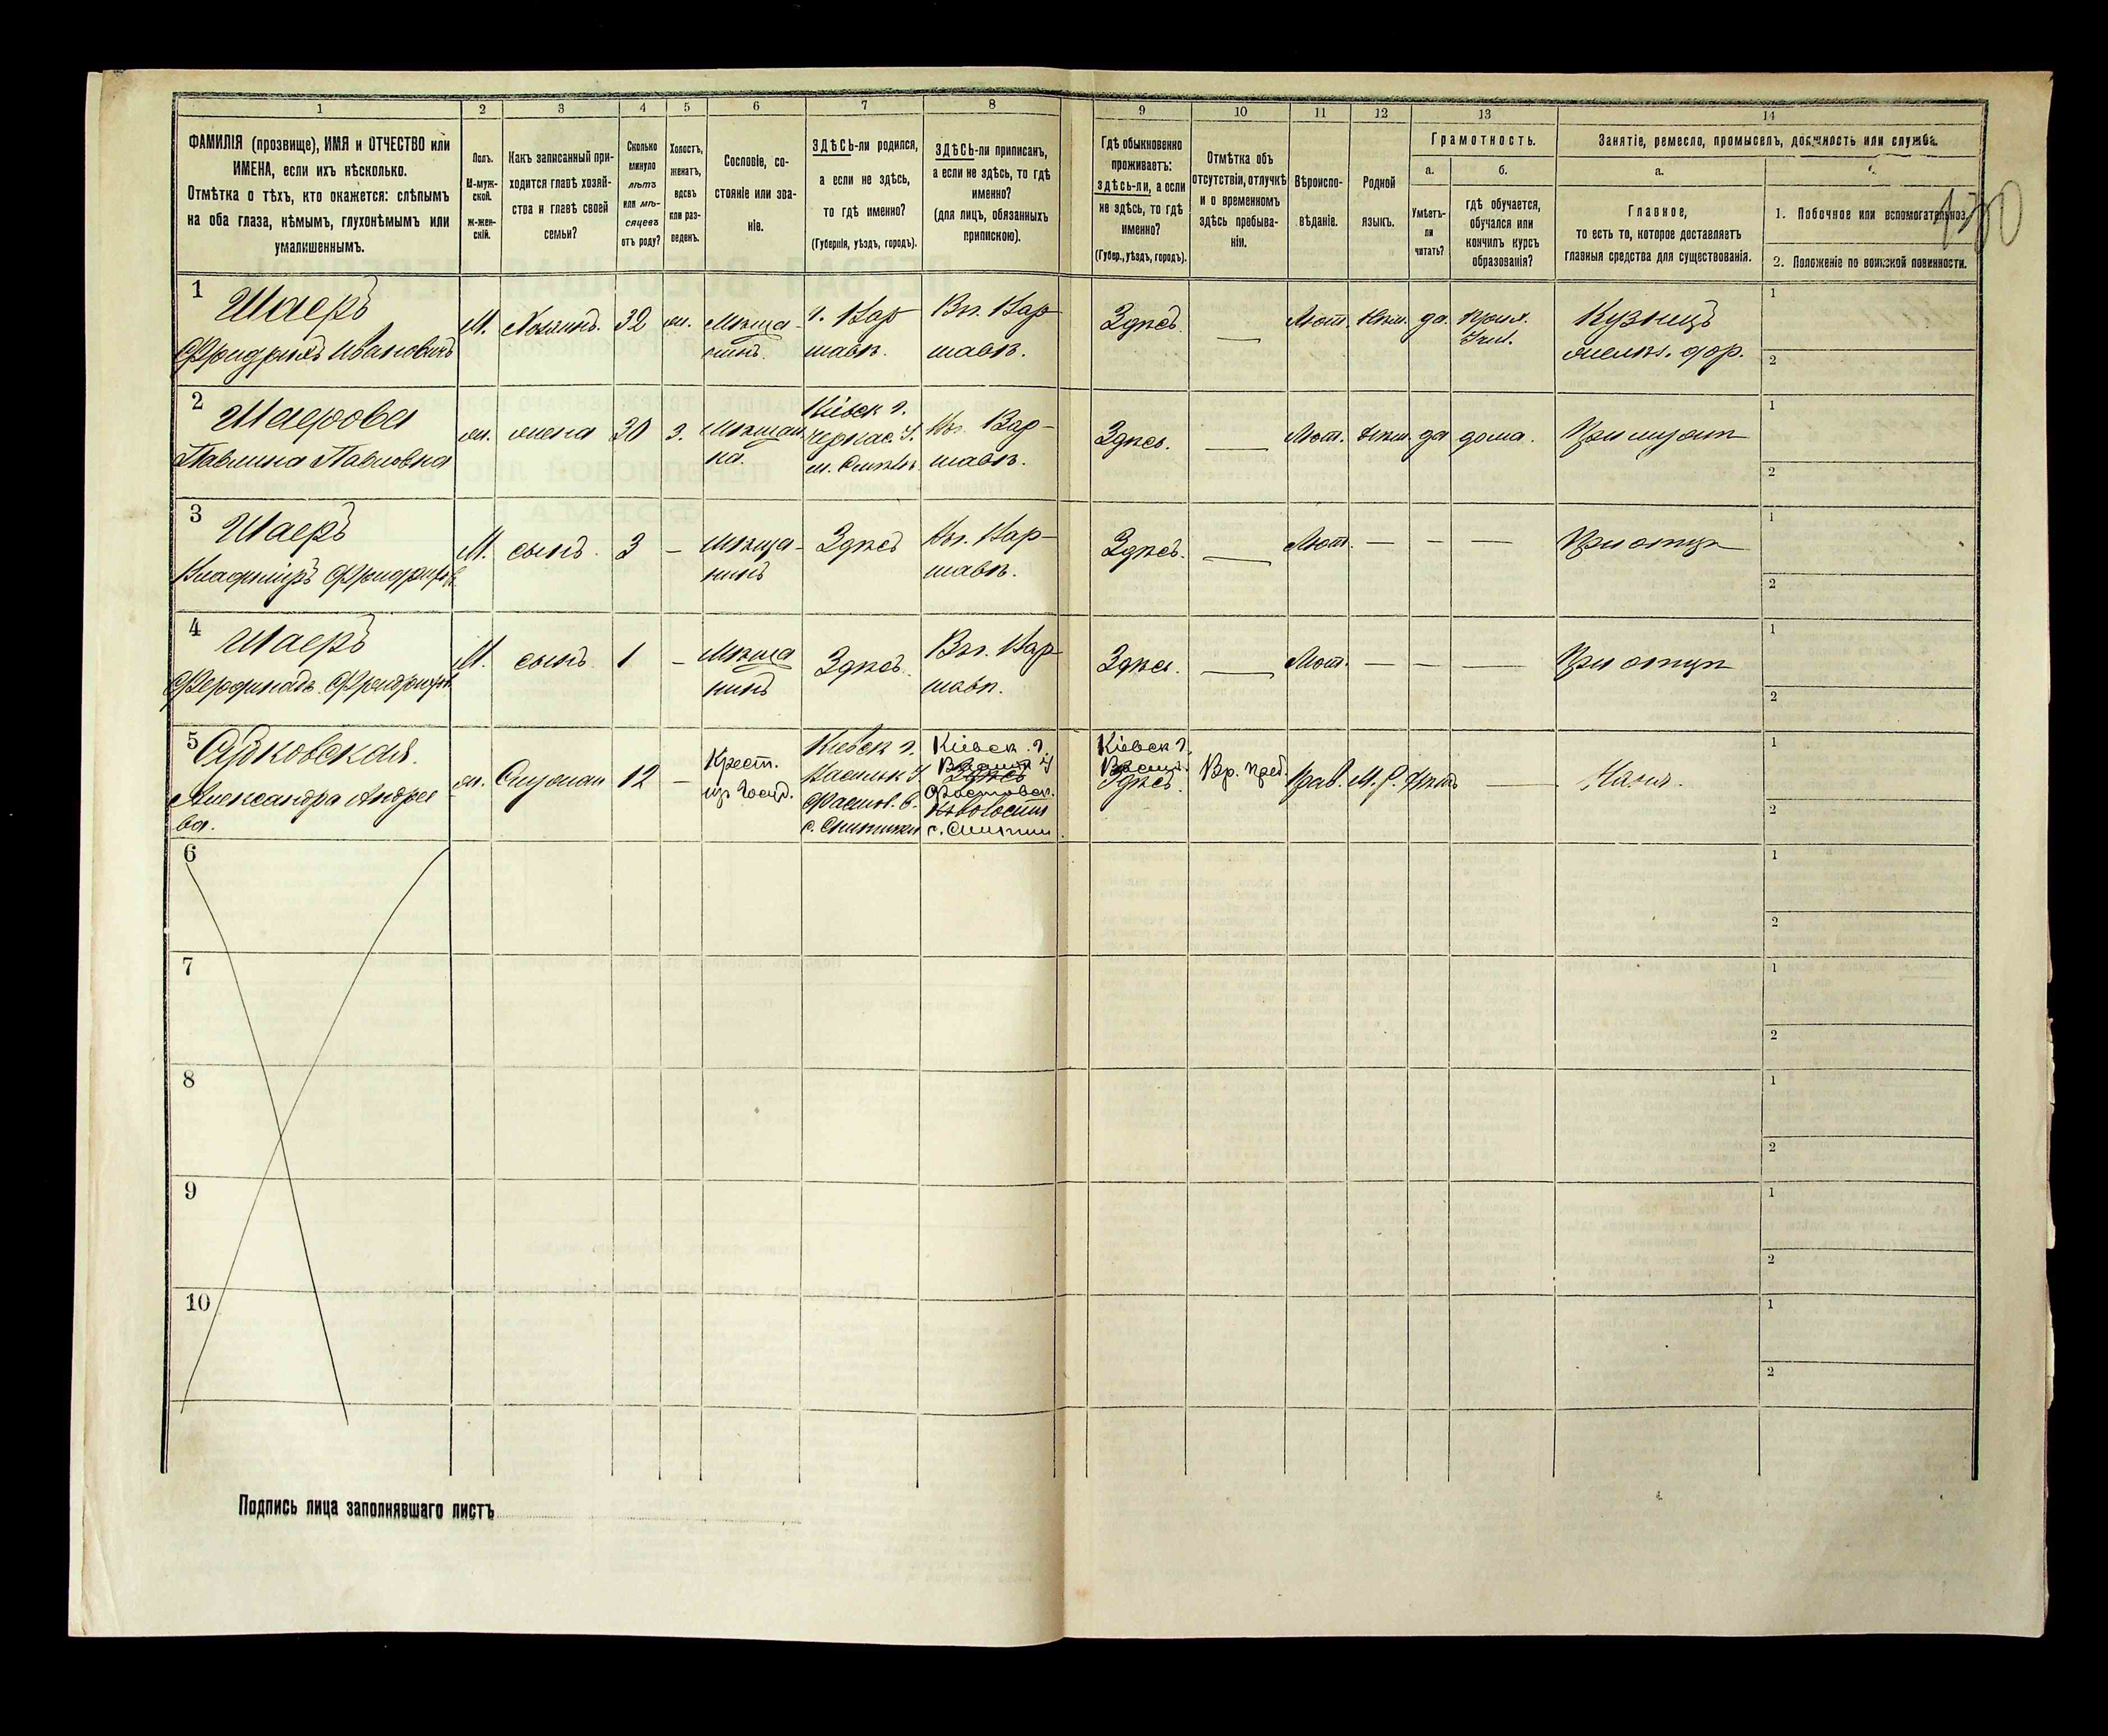 1 2 3 4 5 6 7 8 9 10 11 12 13 14
ФАМИЛІЯ (прозвище), ИМЯ и ОТЧЕСТВО или
ИМЕНА, если ихъ нѣсколько.
Отмѣтка о тѣхъ, кто окажется: слѣпымъ
на оба глаза, нѣмымъ, глухонѣмымъ или
умалишеннымъ.
Полъ.
М-муж-
ской.
Ж-жен-
скій.
Какъ записанный при-
ходится главѣ хозяй-
ства и главѣ своей
семьи?
Сколько
минуло
лѣтъ
или мѣ-
сяцевъ
отъ роду?
Холостъ,
женатъ,
вдовъ
или раз-
веденъ.
Сословіе, со-
стояніе или зва-
ніе.
ЗДѢСЬ-ли родился,
а если не здѣсь,
то гдѣ именно?
(Губернія, уѣздъ, городъ).
ЗДѢСЬ-ли приписанъ,
а если не здѣсь, то гдѣ
именно?
(для лицъ, обязанныхъ
припискою).
Гдѣ обыкновенно
проживаетъ:
здѣсь-ли, а если
не здѣсь, то гдѣ
именно?
(Губер., уѣздъ, городъ).
Отмѣтка объ
отсутствіи, отлучкѣ
и о временномъ
здѣсь пребыва-
ніи.
Вѣроиспо-
вѣданіе.
Родной
языкъ.
Грамотность.
а.
Умѣетъ-
ли
читать?
б.
гдѣ обучается,
обучался или
кончилъ курсъ
образованія?
Занятіе, ремесло, промыселъ, должность или служба.
а.
Главное,
то есть то, которое доставляетъ
главныя средства для существованія.
1. Побочное или вспомогательное.
2. Положеніе по воинской повинности.
130
1 Шаеръ
Фридрихъ Ивановичъ
М. Хозяинъ. 32 ж. Мѣща-
нинъ.
г. Вар-
шавѣ.
Въ г. Вар-
шавѣ.
Здѣсь. — Лют. Нѣм. да
Кузнецъ
1
2
2 Шаерова
Павлина Павловна
ж. жена 30 з. Мѣщан
ка.
Кіевск г.
Черкас. У.
Въ г. Вар-
шавѣ.
Здѣсь. — Лют. Нѣм. да дома. При мужѣ
1
2
3 Шаеръ
Владиміръ Фридрихов
М. сынъ. 3 — Мѣща-
нинъ
Здѣсь
Въ г. Вар-
шавѣ.
Здѣсь. — Лют. — — — При отцѣ
1
2
4 Шаеръ
Фердинадъ Фридрихов
М. сынъ 1 — Мѣща
нинъ
Здѣсь.
Въ г. Вар-
шавѣ.
Здѣсь. — Лют. — — — При отцѣ
1
2
5
Александра Андрее
ва.
ж. 12 — Крест.
из Госуд.
Кіевск г.
Васильк У.
Фастов. в.
с. Снитинки
Кіевск. г.
Васильк У
Здѣсь
Фастовск.
Кіевск г.
Васильк.
Здѣсь.
Вр. преб. Прав. М. Р. Нѣтъ — Няня.
1
2
6
1
2
7
1
2
8
1
2
9
1
2
10
1
2
Подпись лица заполнявшаго листъ